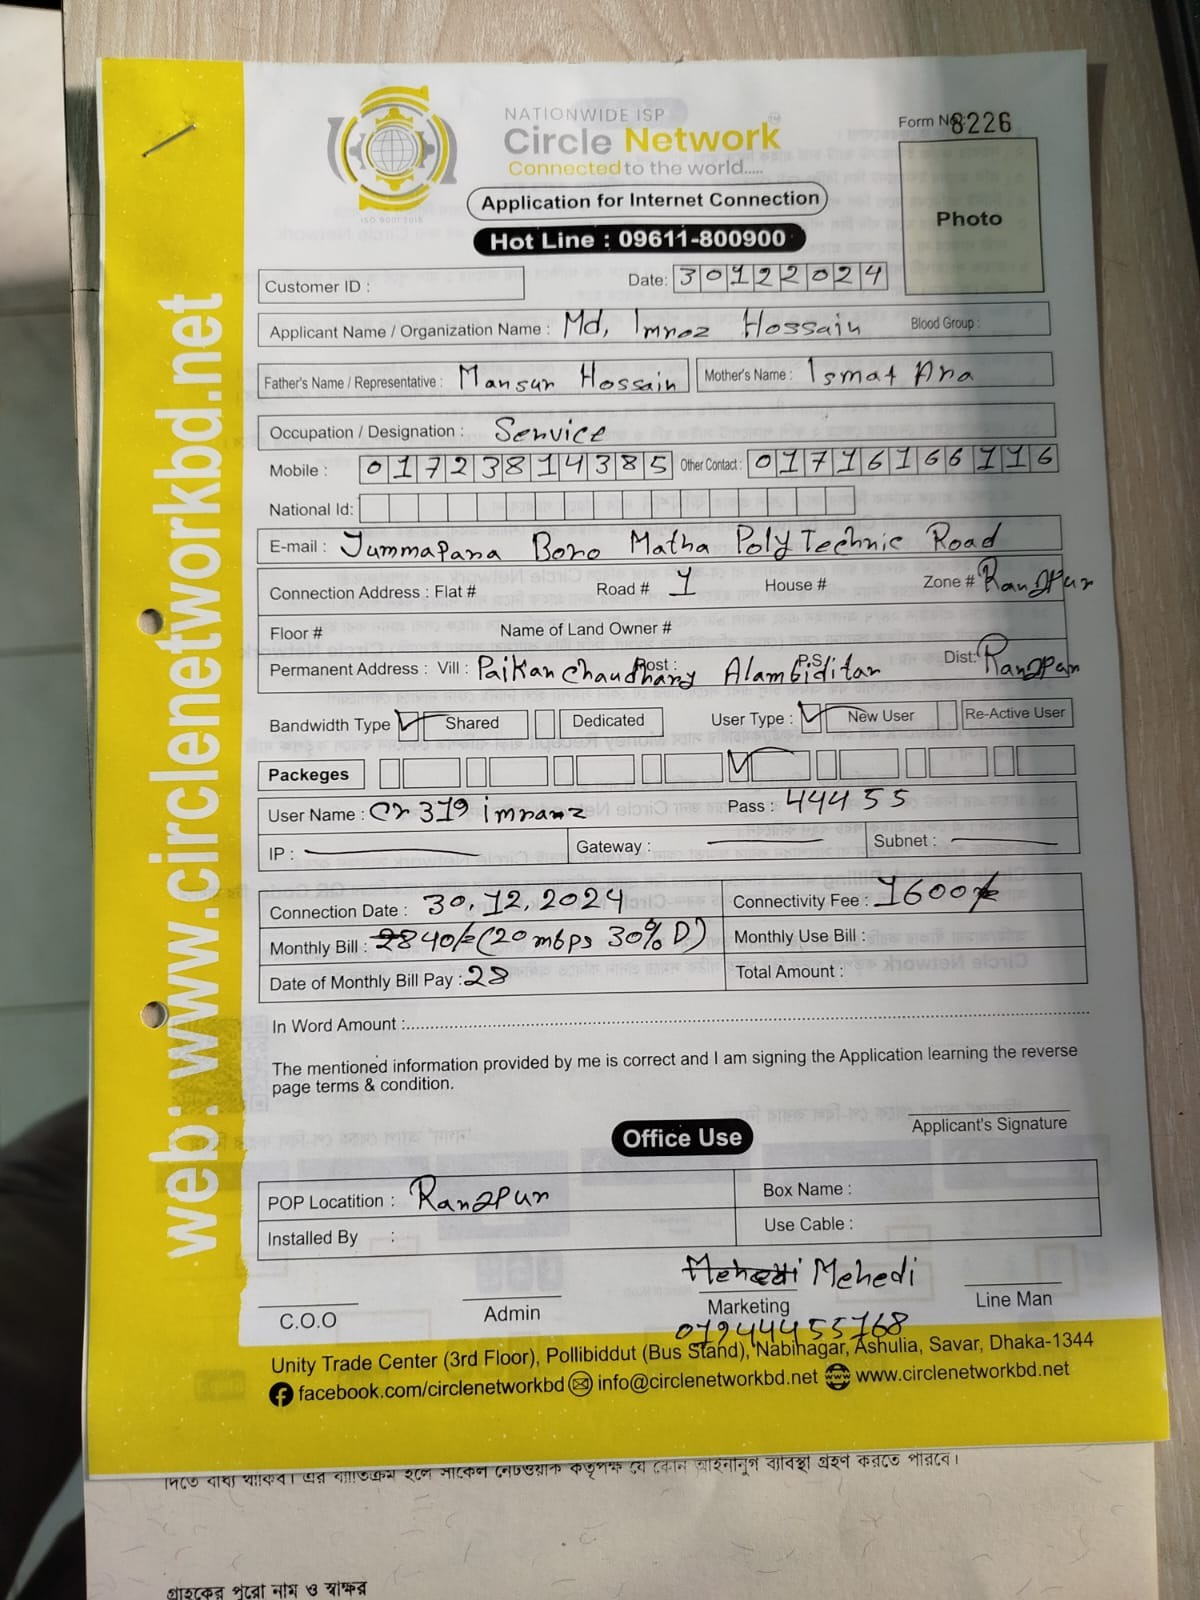 NATIONWIDE ISP
Circle Network
Connected to the world.....
ISO 9001:2015
Form No: 8226
Application for Internet Connection
Photo
Hot Line : 09611-800900
Customer ID : Date: 30122024
Applicant Name / Organization Name : Md. Imroz Hossain Blood Group :
Father's Name / Representative : Mansur Hossain Mother's Name : Ismat Ara
Occupation / Designation : Service
Mobile : 01723814385 Other Contact : 01716166116
National Id:
E-mail : Jummapara Boro Matha Poly Technic Road
Connection Address : Flat # Road # 1 House # Zone # Rangpur
Floor # Name of Land Owner #
Permanent Address : Vill : Paikan Chaudhary Post : Alambiditar P.S Dist: Rangpur
Bandwidth Type Shared Dedicated User Type : New User Re-Active User
Packeges
User Name : Cr319 Pass : 444 55
IP : Gateway : Subnet :
Connection Date : 30.12.2024 Connectivity Fee : 1600/-
Monthly Bill : 840/- (20 mbps 30% D) Monthly Use Bill :
Date of Monthly Bill Pay : 28 Total Amount :
In Word Amount :
The mentioned information provided by me is correct and I am signing the Application learning the reverse
page terms & condition.
Applicant's Signature
Office Use
POP Locatition : Rangpur Box Name :
Installed By : Use Cable :
Mehedi Mehedi
C.O.O Admin Marketing Line Man
01944455768
Unity Trade Center (3rd Floor), Pollibiddut (Bus Stand), Nabinagar, Ashulia, Savar, Dhaka-1344
facebook.com/circlenetworkbd info@circlenetworkbd.net www.circlenetworkbd.net
web: www.circlenetworkbd.net
দিতে বাধ্য থাকিব। এর ব্যতিক্রম হলে সার্কেল নেটওয়ার্ক কতৃপক্ষ যে কোন আইনানুগ ব্যবিস্থা গ্রহণ করতে পারবে।
গ্রাহকের পুরো নাম ও স্বাক্ষর